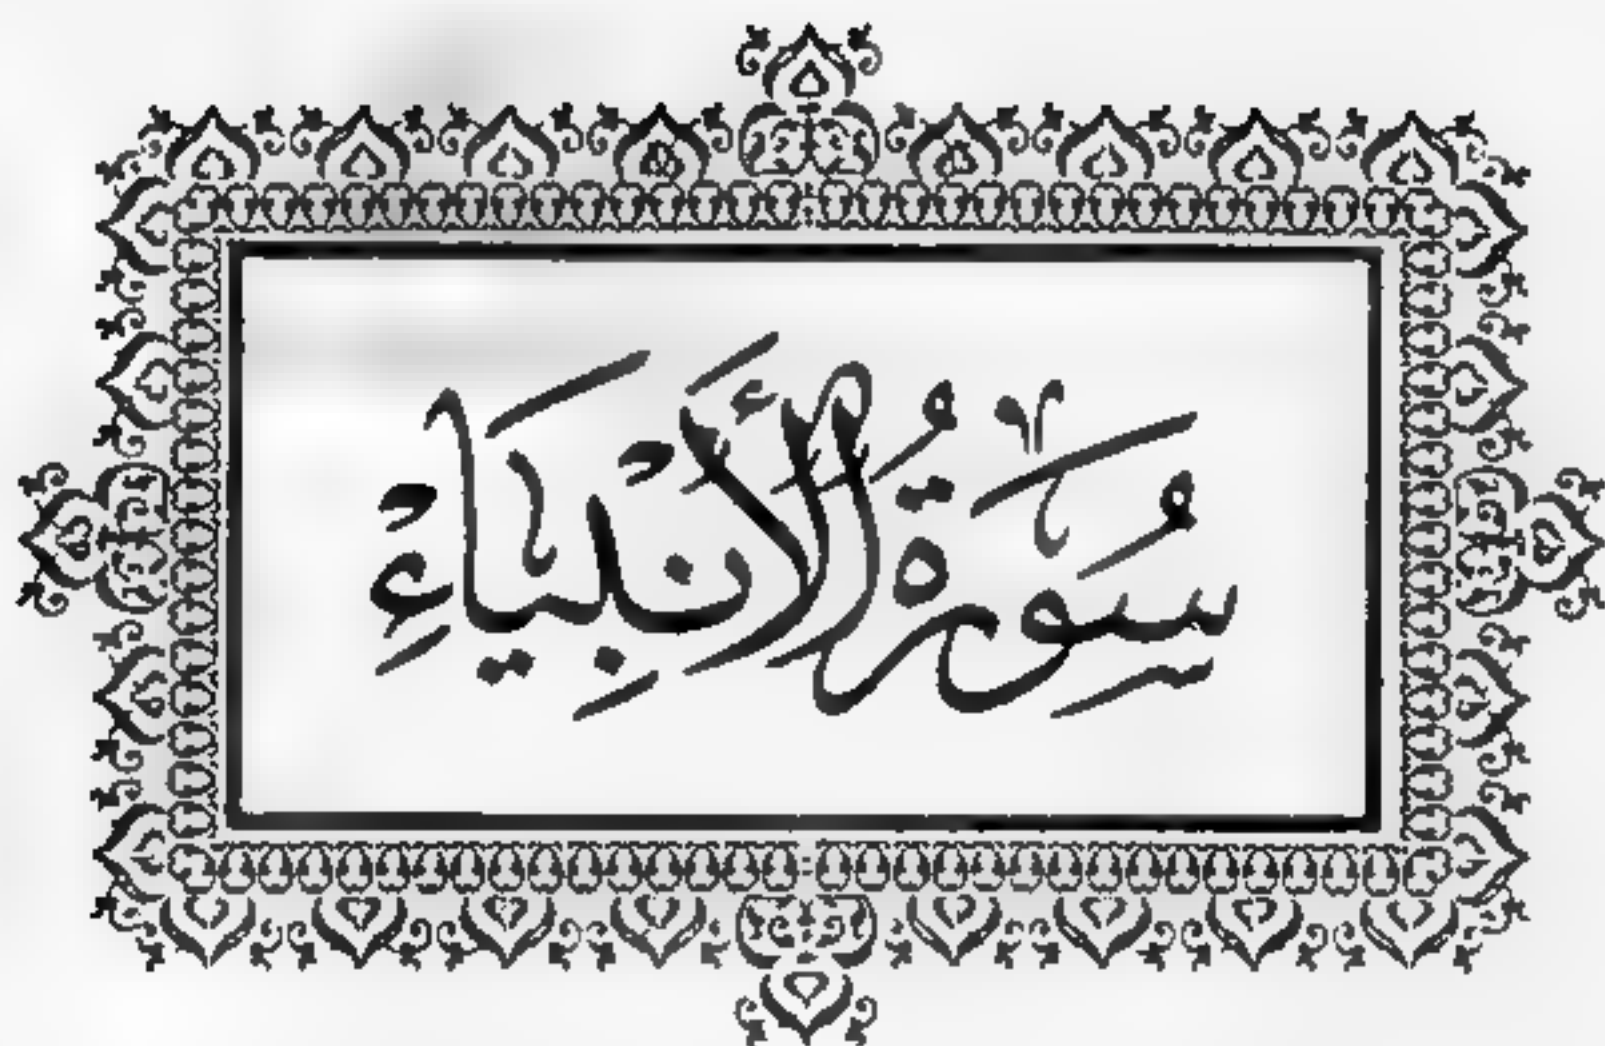 سُورَةُ الْأَنْبِيَاءِ